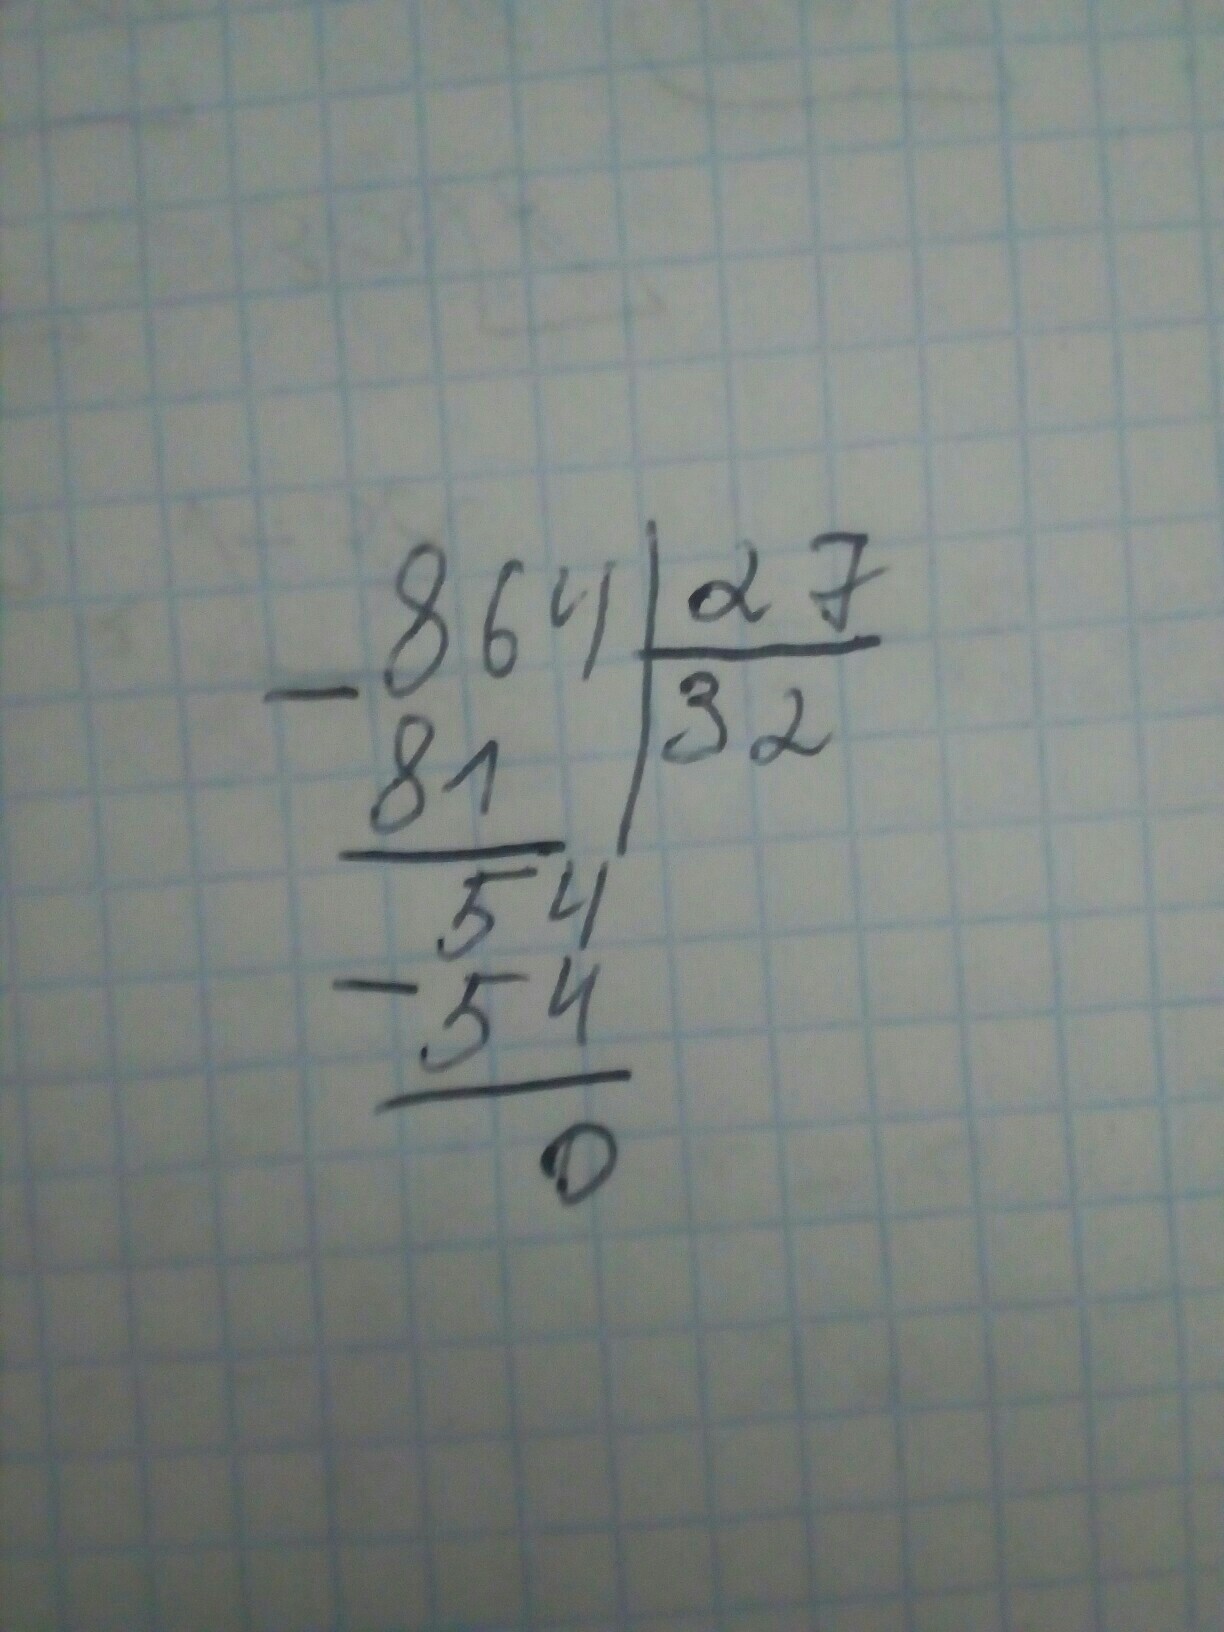 864 27
- 32
81
54
- 54
0